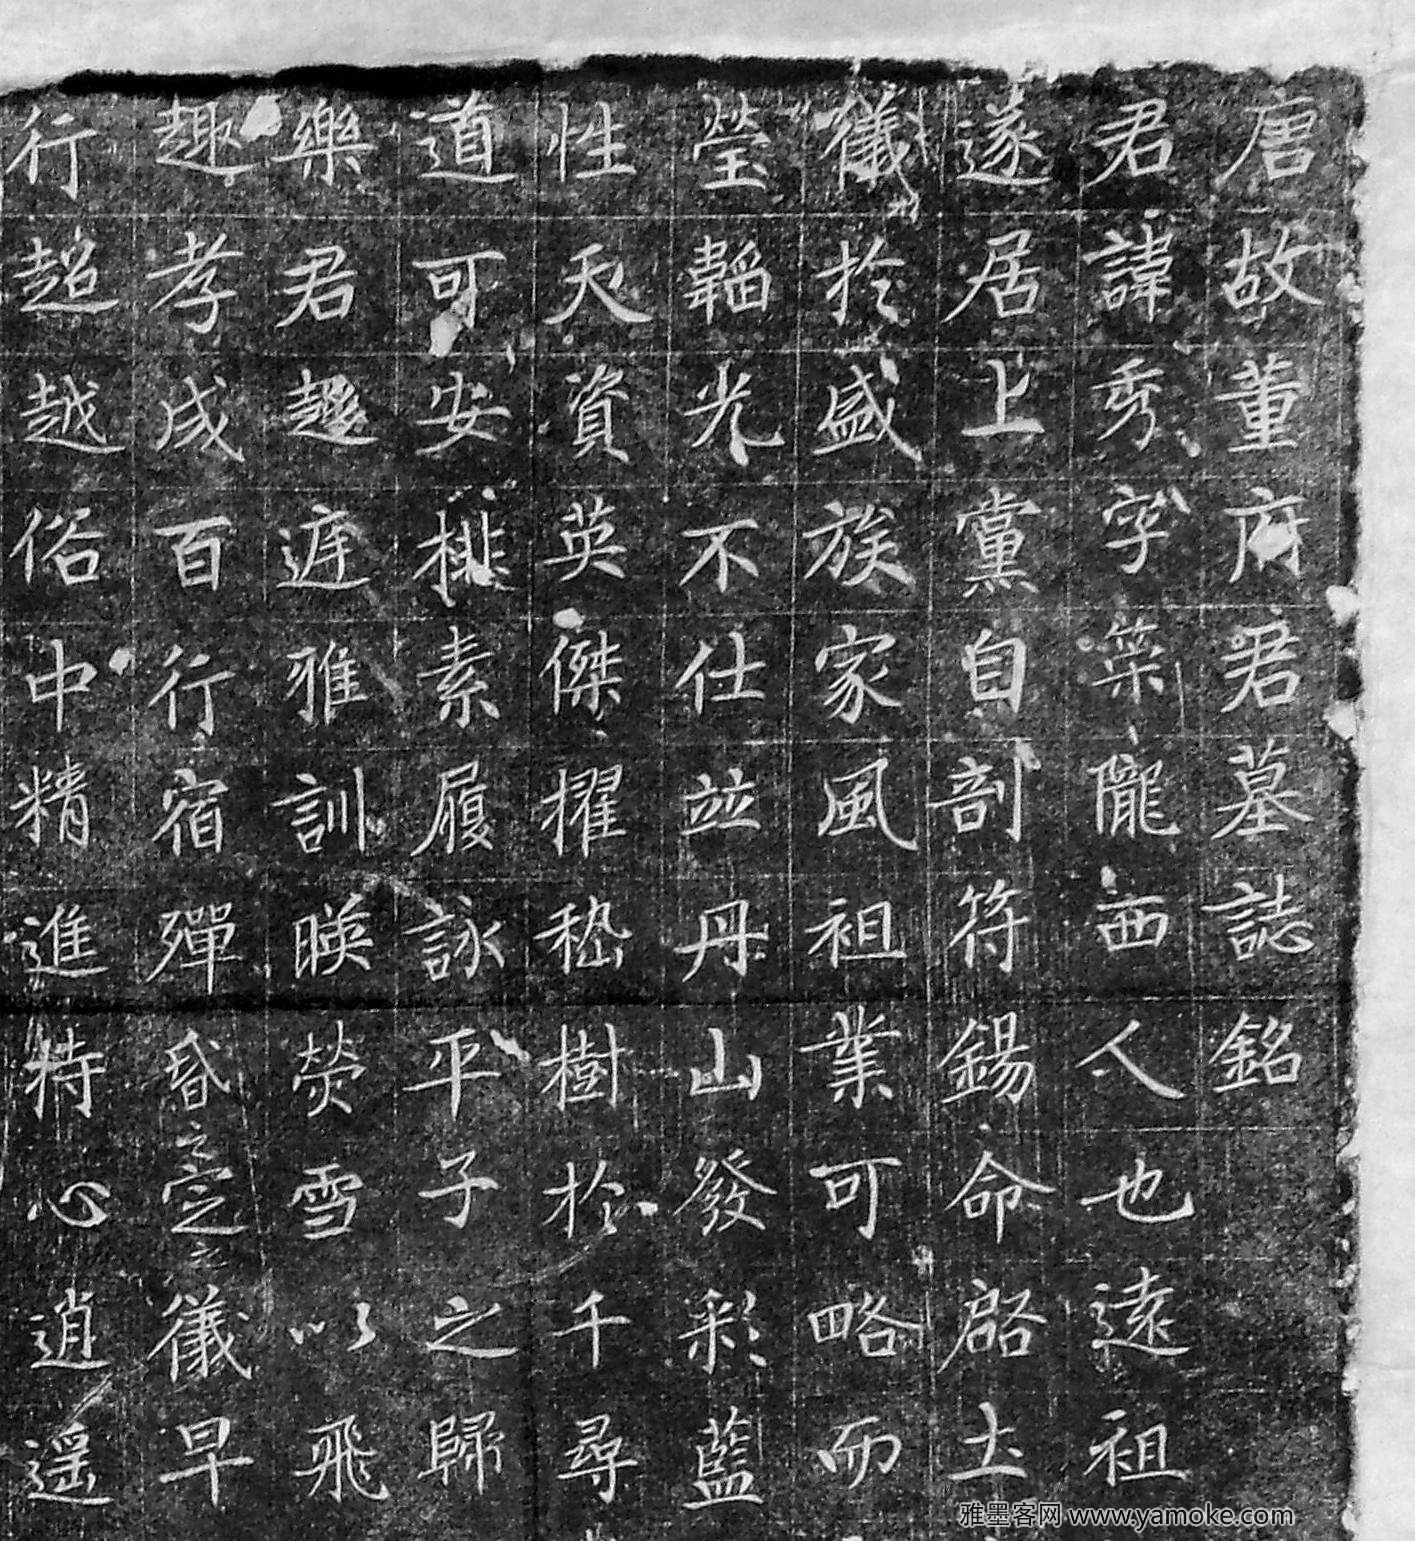 唐故董府君墓誌銘
君諱秀字榮隴西人也遠祖
遂居上黨自剖符錫命啓土
儀於盛族家風祖業可略而
瑩韜光不仕竝丹山發彩藍
性天資英傑擢嵇樹於千尋
道可安棑素履詠平子之歸
樂君趨逰雅訓暎熒雪以飛
趣孝成百行宿殫昏定之儀早
行超越俗中精進持心逍遥
雅墨客网 www.yamoke.com